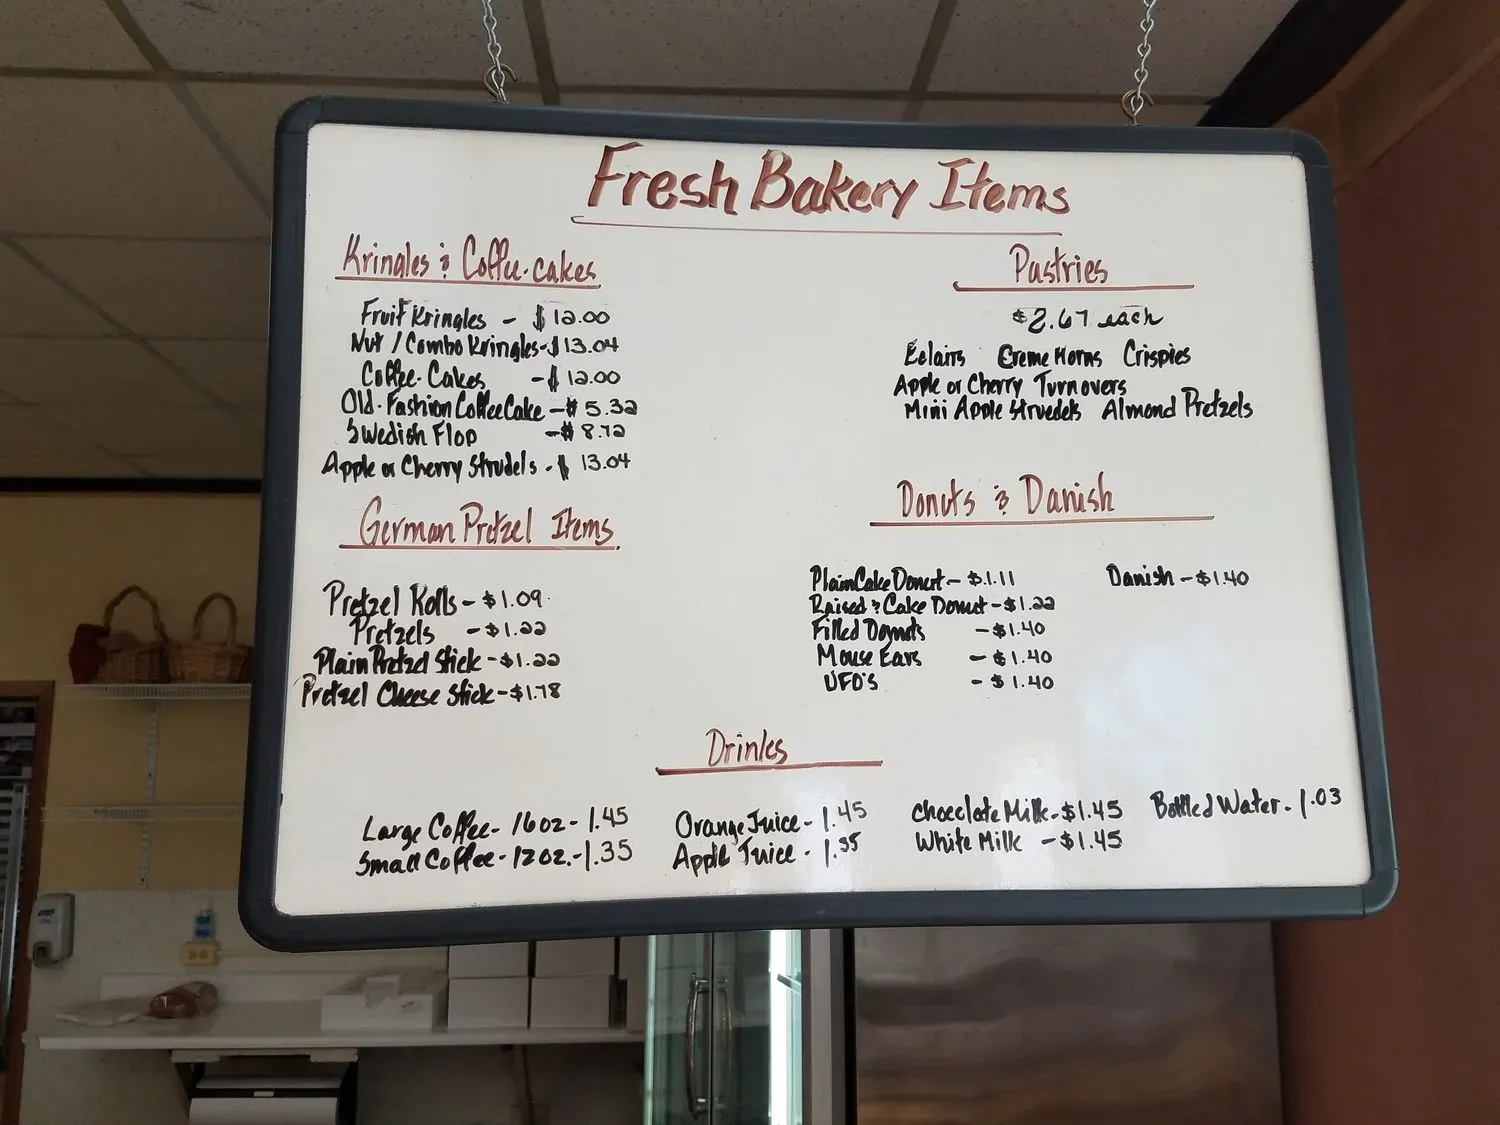 Fresh Bakery Items
Kringles & Coffee-cakes
Fruit Kringles - $12.00
Nut / Combo Kringles - $13.04
Coffee-Cakes - $12.00
Old-Fashion Coffee Cake - $5.32
Swedish Flop - $8.72
Apple or Cherry Strudels - $13.04
German Pretzel Items
Pretzel Rolls - $1.09
Pretzels - $1.22
Plain Pretzel Stick - $1.22
Pretzel Cheese Stick - $1.78
Pastries
$2.67 each
Eclairs Creme Horns Crispies
Apple or Cherry Turnovers
Mini Apple Strudels Almond Pretzels
Donuts & Danish
Plain Cake Donut - $1.11
Raised & Cake Donut - $1.22
Filled Donuts - $1.40
Mouse Ears - $1.40
UFO'S - $1.40
Danish - $1.40
Drinks
Large Coffee - 16oz - 1.45
Small Coffee - 12oz. - 1.35
Orange Juice - 1.45
Apple Juice -
Chocolate Milk - $1.45
White Milk - $1.45
Bottled Water - 1.03